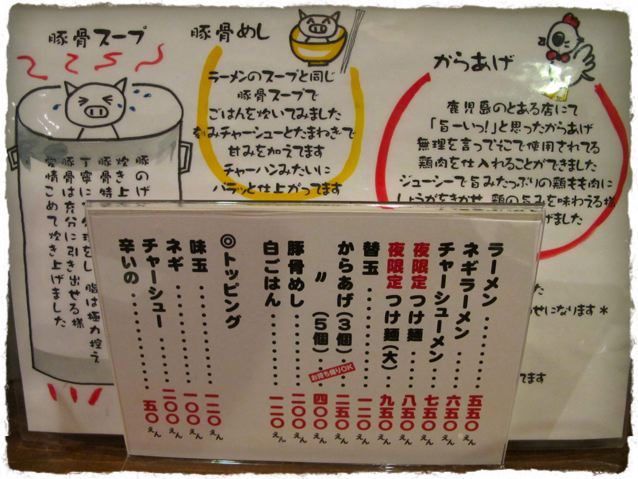 豚骨スープ
豚骨めし
ラーメンのスープと同じ
豚骨スープで
ごはんを炊いてみました
刻みチャーシューとたまねぎで
甘みを加えてます
チャーハンみたいに
パラッと仕上がってます
からあげ
鹿児島のとある店にて
「旨ーいっ!」と思ったからあげ
無理を言ってそこで使用されてる
鶏肉を仕入れることができました
ジューシーで旨みたっぷりの鶏もも肉に
しょうがをきかせ、鶏の旨みを味わえる様
げました
豚のげ
炊き上
豚骨特
丁寧に
理をし 脂は極力控え
豚骨は充分に引き出せる様
愛情こめて炊き上げました
た
せになります*
てます
ラーメン 五五〇えん
ネギラーメン 六五〇えん
チャーシューメン 七五〇えん
夜限定 つけ麺 八五〇えん
夜限定 つけ麺(大) 九五〇えん
替玉 一二〇えん
からあげ(3個) 二五〇えん
〃(5個) 四〇〇えん
お持ち帰りOK
豚骨めし 二〇〇えん
白ごはん 一二〇えん
◎トッピング
味玉 一二〇えん
ネギ 一〇〇えん
チャーシュー 二〇〇えん
辛いの 五〇えん